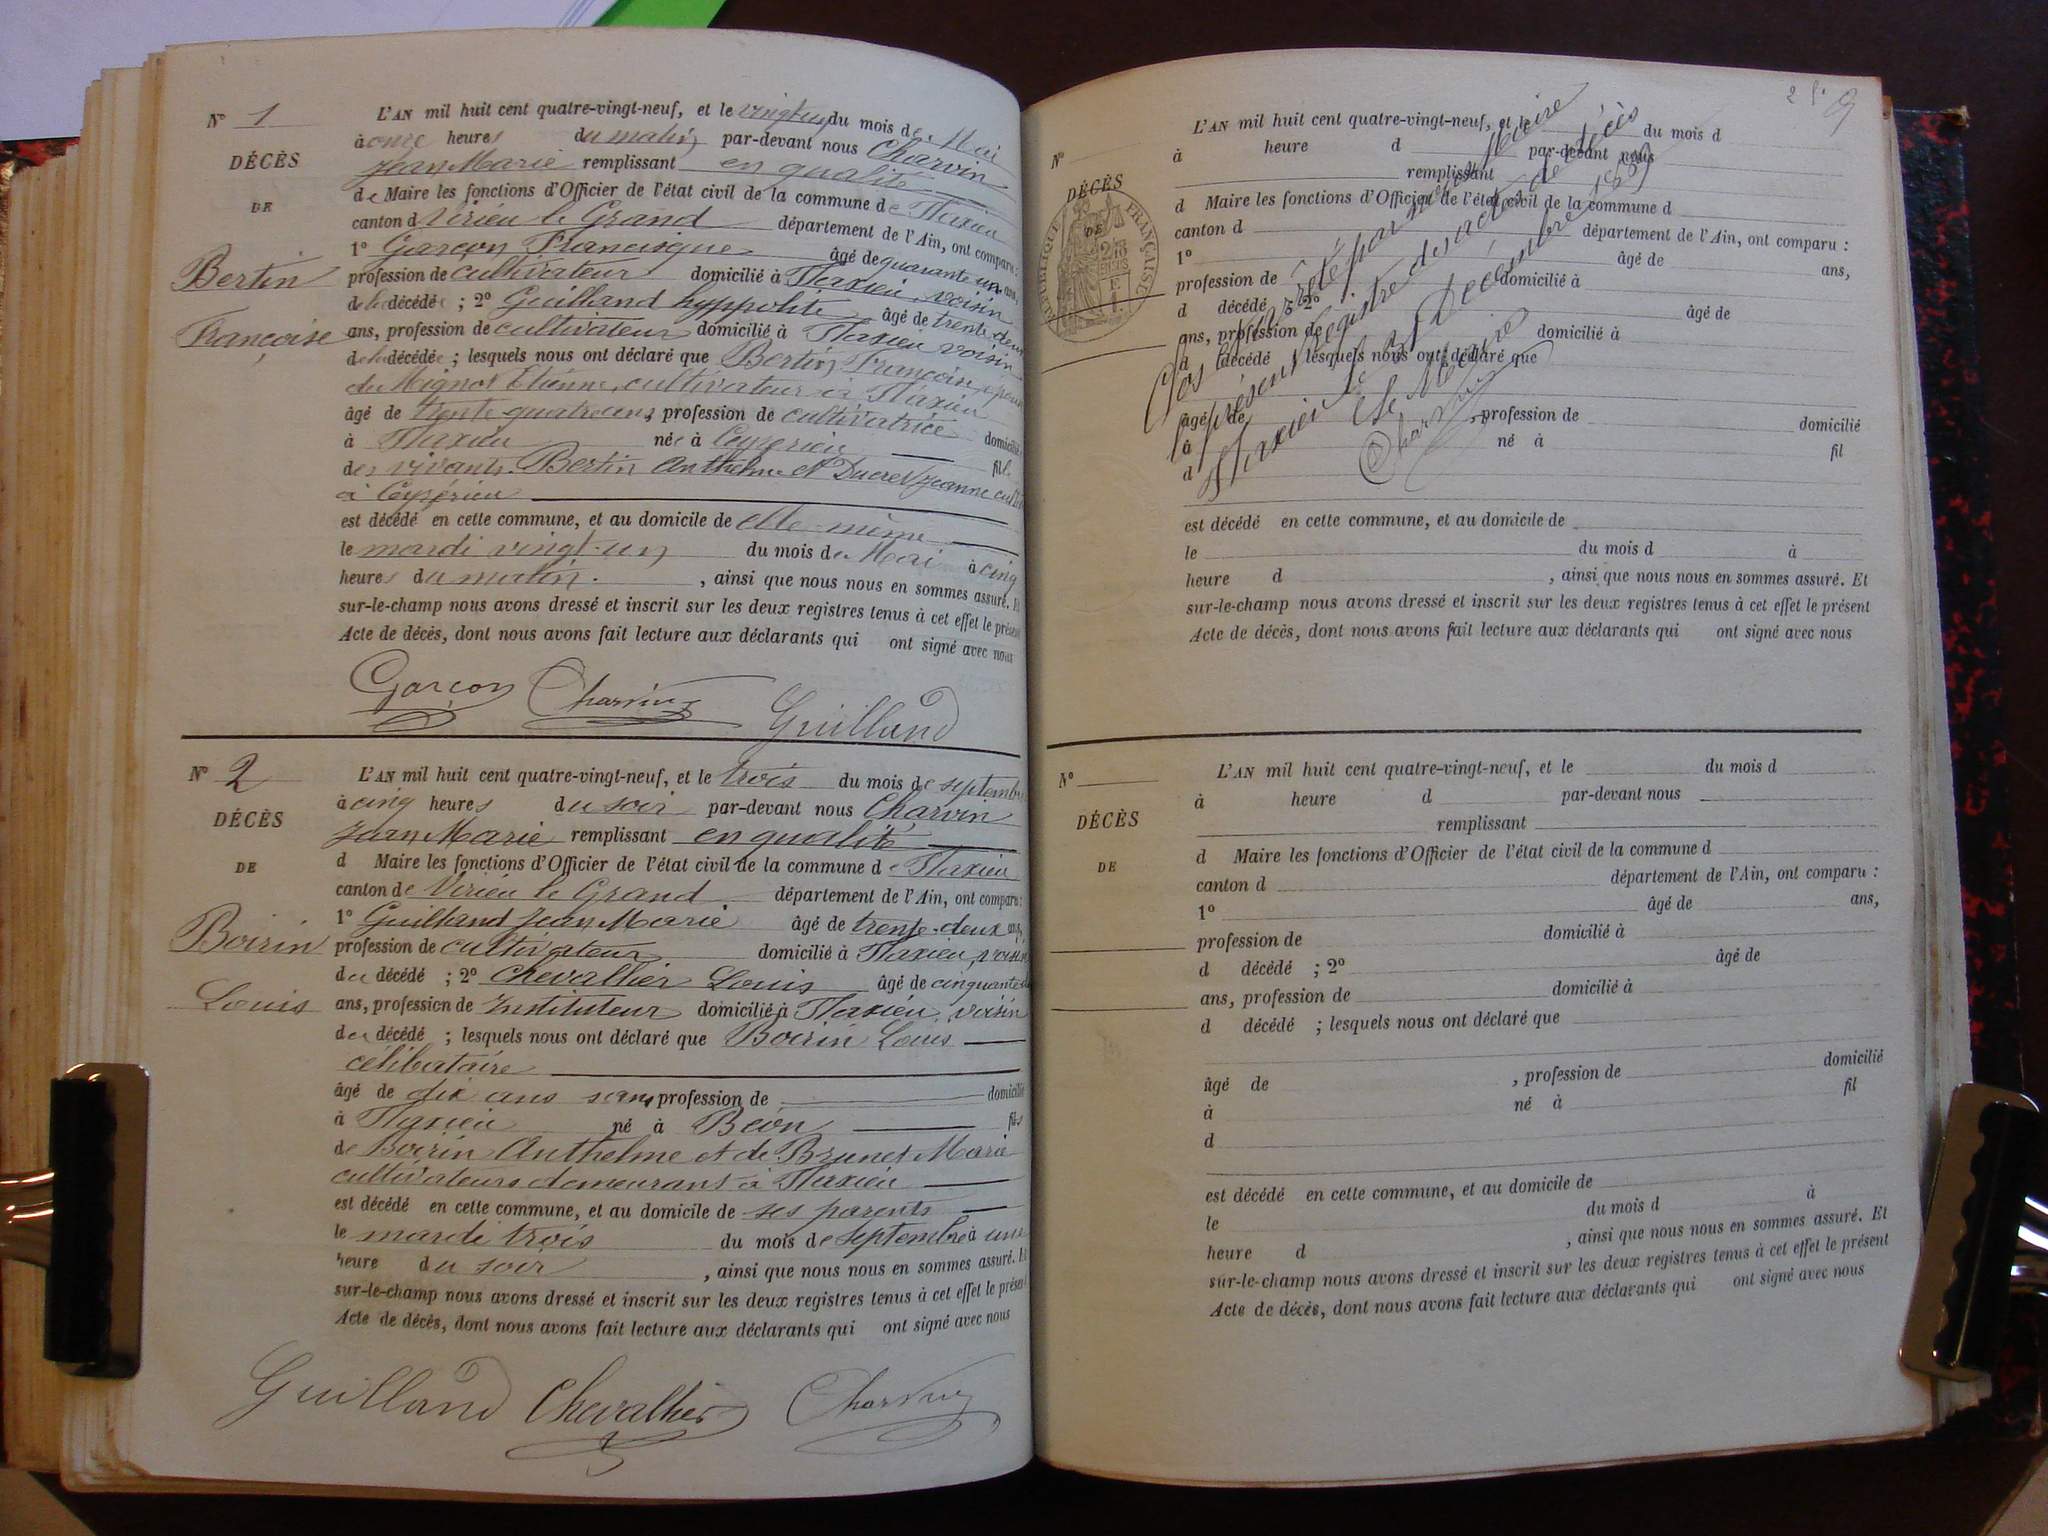 N° 1
DÉCÈS
DE
Bertin
Françoise
L'AN mil huit cent quatre-vingt-neuf, et le vingt un du mois de Mai
à onze heures du matin par-devant nous Charvin
Jean Marie remplissant en qualité
de Maire les fonctions d'Officier de l'état civil de la commune de Flaxieu
canton d Virieu le Grand département de l'Ain, ont comparu :
1° Garçon Francisque âgé de quarante un ans,
profession de cultivateur domicilié à Flaxieu, voisin
de la décédée ; 2° Guilland hyppolite âgé de trente deux
ans, profession de cultivateur domicilié à Flaxieu voisin
de la décédée ; lesquels nous ont déclaré que Bertin Françoise, épouse
de Mignot Etienne, cultivateur à Flaxieu
âgé de trente quatre ans, profession de cultivatrice domicilié
à Flaxieu née à Ceyzerieu fille
des vivants Bertin Anthelme et Ducret Jeanne
à Ceyzérieu
est décédé en cette commune, et au domicile de elle-même
le mardi vingt-un du mois de Mai à cinq
heures du matin. , ainsi que nous nous en sommes assuré. Et
sur-le-champ nous avons dressé et inscrit sur les deux registres tenus à cet effet le présent
Acte de décès, dont nous avons fait lecture aux déclarants qui ont signé avec nous
Garçon Charvin Guilland
N° 2
DÉCÈS
DE
Boirin
Louis
L'AN mil huit cent quatre-vingt-neuf, et le trois du mois de septembre
à cinq heures du soir par-devant nous Charvin
Jean Marie remplissant en qualité
d Maire les fonctions d'Officier de l'état civil de la commune de Flaxieu
canton de Virieu le Grand département de l'Ain, ont comparu :
1° Guilland Jean Marie âgé de trente-deux ans,
profession de cultivateur domicilié à Flaxieu, voisin
du décédé ; 2° Chevallier Louis âgé de cinquante
ans, profession de Instituteur domicilié à Flaxieu, voisin
du décédé ; lesquels nous ont déclaré que Boirin Louis
célibataire
âgé de dix ans sans profession de domicilié
à Flaxieu né à Béon fils
de Boirin Anthelme et de Brunet Marie
cultivateurs demeurant à Flaxieu
est décédé en cette commune, et au domicile de ses parents
le mardi trois du mois de septembre à une
heure du soir , ainsi que nous nous en sommes assuré. Et
sur-le-champ nous avons dressé et inscrit sur les deux registres tenus à cet effet le présent
Acte de décès, dont nous avons fait lecture aux déclarants qui ont signé avec nous
Guilland Chevallier Charvin
9
N°
DÉCÈS
DE
RÉPUBLIQUE FRANÇAISE
L'AN mil huit cent quatre-vingt-neuf, et le du mois d
à heure d par-devant nous
remplissant
d Maire les fonctions d'Officier de l'état civil de la commune d
canton d département de l'Ain, ont comparu :
1° âgé de ans,
profession de domicilié à
d décédé ; 2° âgé de
ans, profession de domicilié à
d décédé ; lesquels nous ont déclaré que
âgé de , profession de domicilié
à né à fil
d
Clos et arrêté par nous Maire
le présent registre des actes de décès
Flaxieu le 31 Décembre 1889
Le Maire
Charvin
est décédé en cette commune, et au domicile de
le du mois d à
heure d , ainsi que nous nous en sommes assuré. Et
sur-le-champ nous avons dressé et inscrit sur les deux registres tenus à cet effet le présent
Acte de décès, dont nous avons fait lecture aux déclarants qui ont signé avec nous
N°
DÉCÈS
DE
L'AN mil huit cent quatre-vingt-neuf, et le du mois d
à heure d par-devant nous
remplissant
d Maire les fonctions d'Officier de l'état civil de la commune d
canton d département de l'Ain, ont comparu :
1° âgé de ans,
profession de domicilié à
d décédé ; 2° âgé de
ans, profession de domicilié à
d décédé ; lesquels nous ont déclaré que
âgé de , profession de domicilié
à né à fil
d
est décédé en cette commune, et au domicile de
le du mois d à
heure d , ainsi que nous nous en sommes assuré. Et
sur-le-champ nous avons dressé et inscrit sur les deux registres tenus à cet effet le présent
Acte de décès, dont nous avons fait lecture aux déclarants qui ont signé avec nous